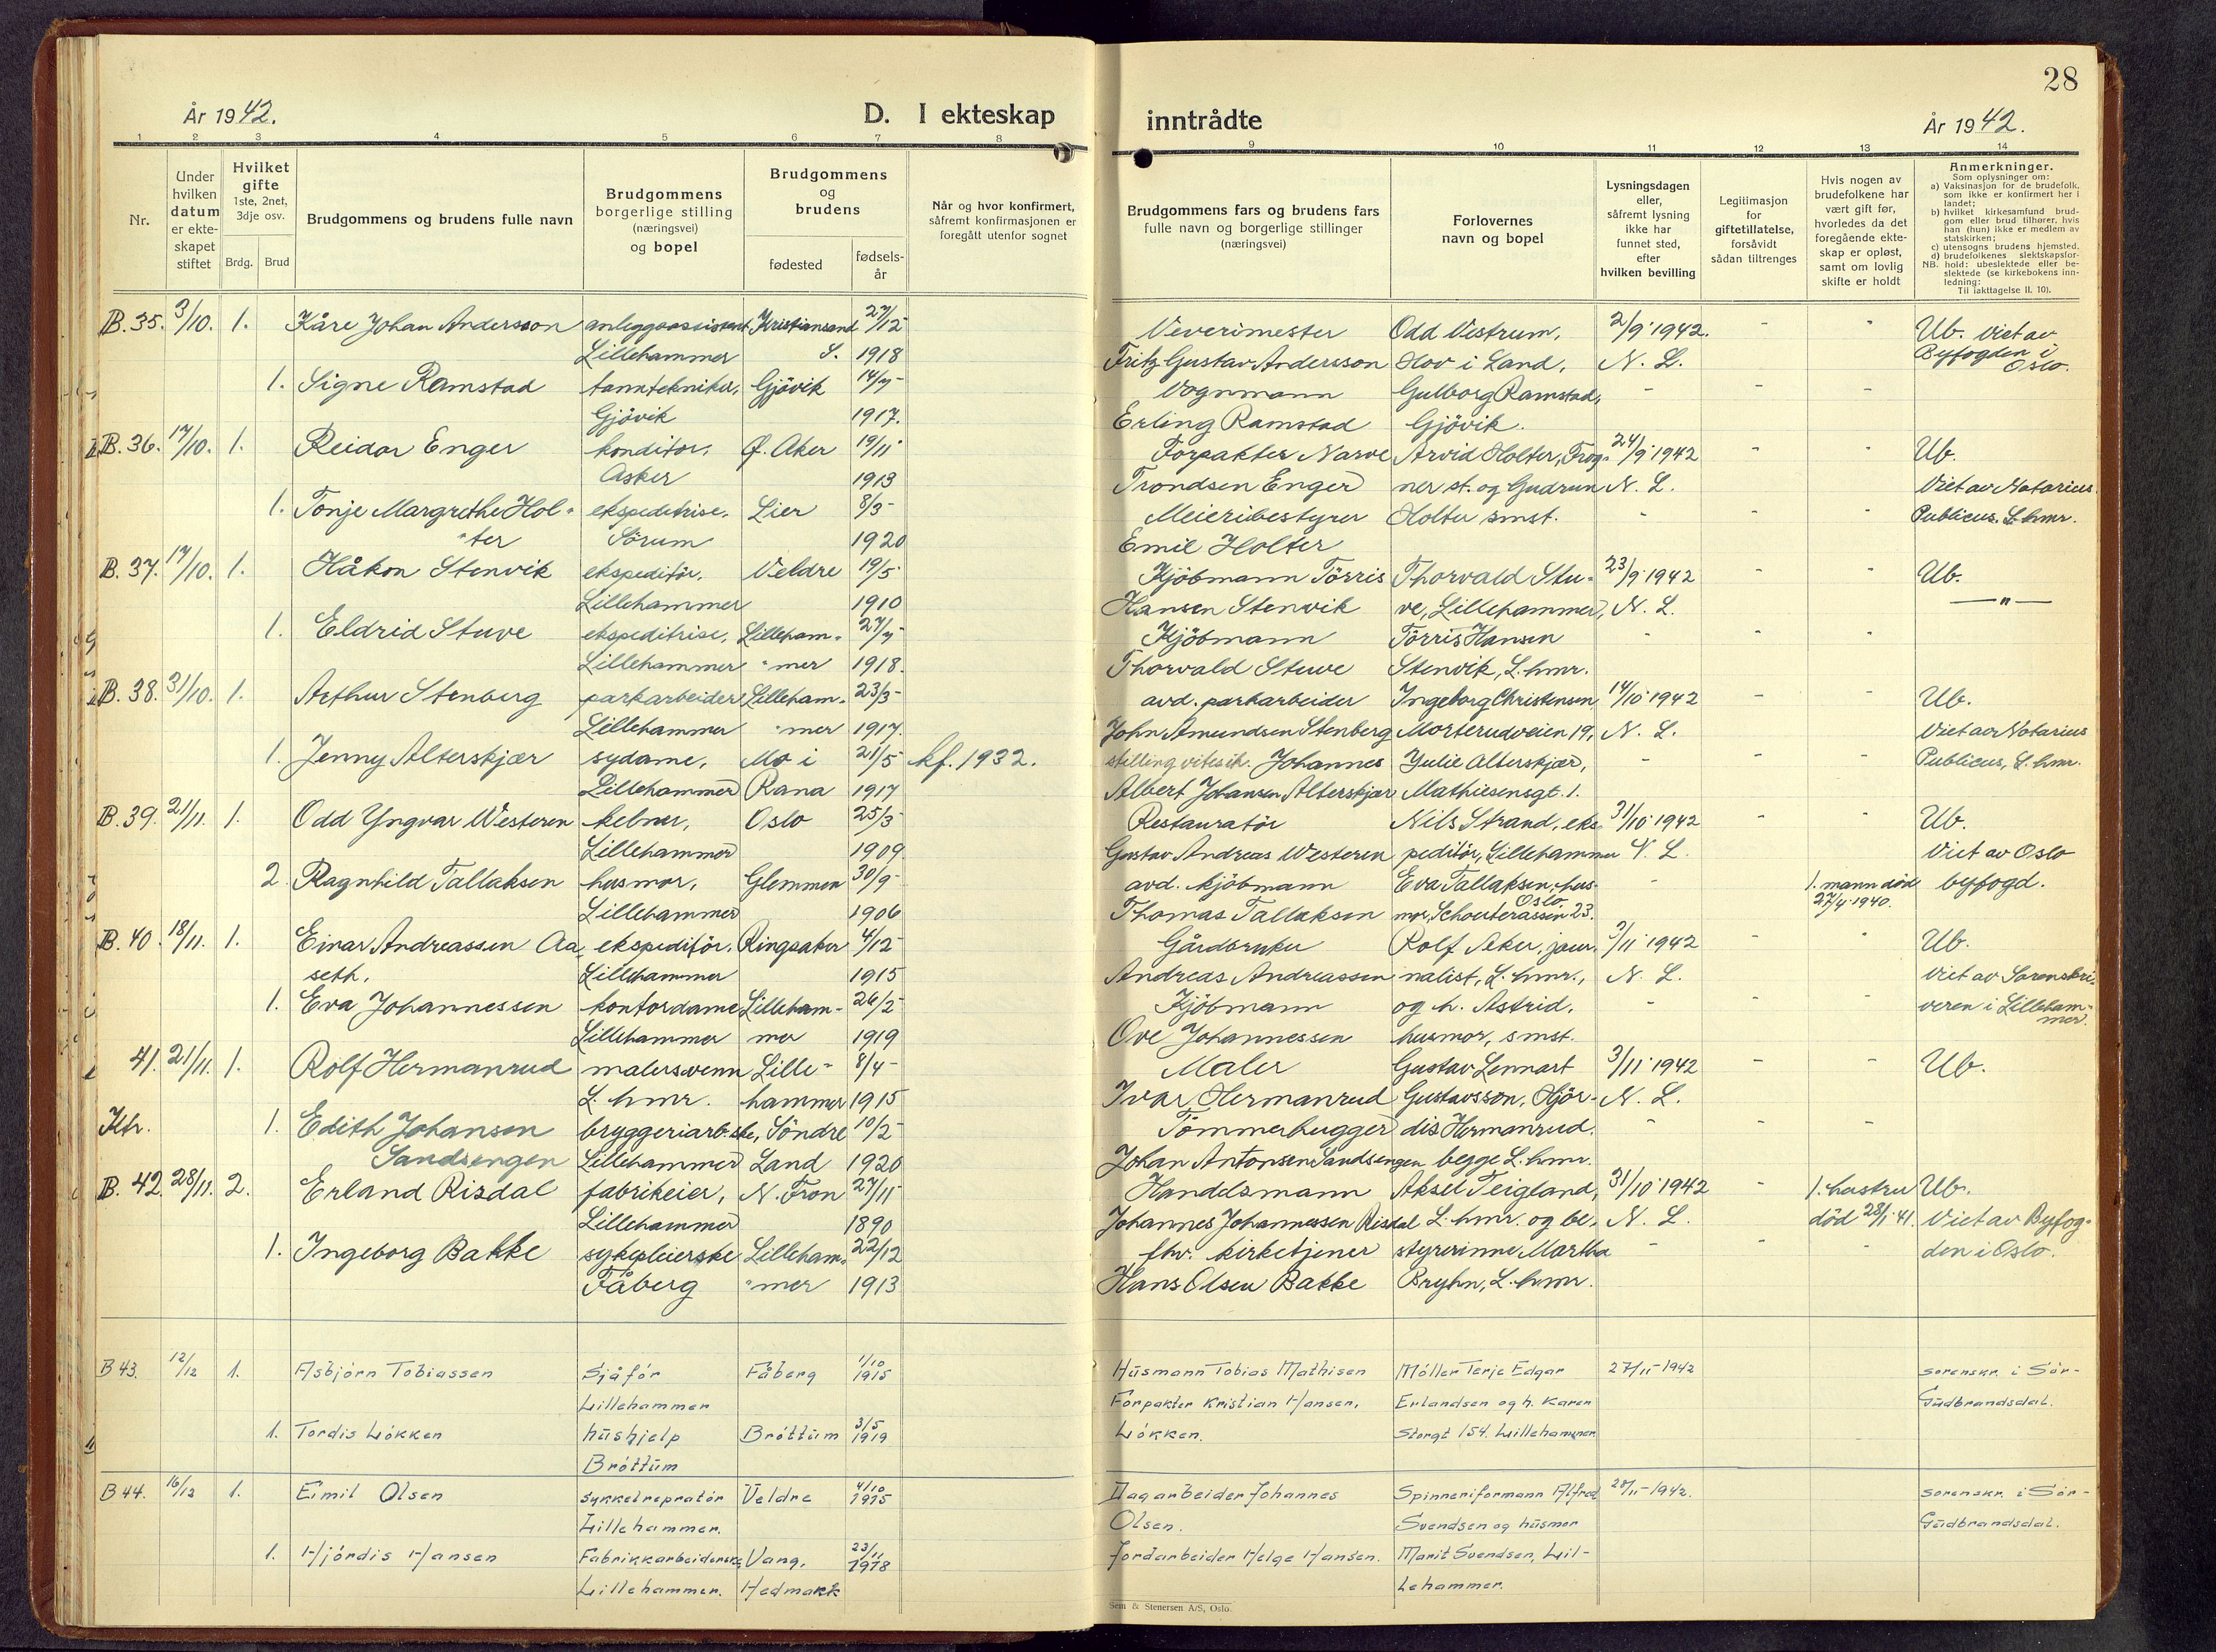 År 1942.
D. I ekteskap
1 2 3 4 5 6 7 8
Nr.
Under hvilken datum er ekteskapet stiftet
Hvilket gifte 1ste, 2net, 3dje osv.
Brdg. Brud
Brudgommens og brudens fulle navn
Brudgommens borgerlige stilling (næringsvei) og bopel
Brudgommens og brudens
fødested
fødselsår
Når og hvor konfirmert, såfremt konfirmasjonen er foregått utenfor sognet
B. 35. 3/10. 1. Kåre Johan Andersson anleggsassistent Kristiansand 27/12
Lillehammer S. 1918
1. Signe Ramstad tanntekniker, Gjövik 14/7
Gjövik 1917.
B. 36. 17/10. 1. Reidar Enger konditor, Ø. Aker 19/11
Asker 1913
1. Tonje Margrethe Hol- ekspeditrise, Lier 8/3
ter Sörum 1920
B. 37. 17/10. 1. Håkon Stenvik ekspeditör, Veldre 19/5
Lillehammer 1910
1. Eldrid Stuve ekspeditrise, Lilleham- 27/7
Lillehammer mer 1918.
B. 38. 31/10. 1. Arthur Stenberg parkarbeider Lilleham- 23/3
Lillehammer mer 1917.
1. Jenny Alterskjær sydame, Mo i 21/5 kf. 1932.
Lillehammer Rana 1917
B. 39. 21/11. 1. Odd Yngvar Westeren kelner, Oslo 25/3
Lillehammer 1909.
2. Ragnhild Tallaksen husmor, Glemmen 30/9
Lillehammer 1906
B. 40. 18/11. 1. Einar Andreassen Aa- ekspeditör, Ringsaker 4/12
seth, Lillehammer 1915
1. Eva Johannessen kontordame Lilleham- 26/2
Lillehammer mer 1919
41. 21/11. 1. Rolf Hermanrud malersvenn Lille- 8/4
L.hmr. hammer 1915
Kh. 1. Edith Johansen bryggeriarb.ske, Söndre 10/2
Sandsengen Lillehammer Land 1920
B. 42. 28/11. 2. Erland Risdal fabrikeier, N. Fron 27/11
Lillehammer 1890
1. Ingeborg Bakke sykepleierske Lilleham- 22/12
Fåberg mer 1913
B 43. 12/12 1. Asbjörn Tobiassen Sjåför Fåberg 1/10 1915
Lillehammer
1. Tordis Lökken hushjelp Bröttum 3/5 1919
Bröttum
B 44. 16/12 1. Eimil Olsen Sykkelrepratör Veldre 4/10 1915
Lillehammer.
1. Hjördis Hansen Fabrikkarbeiderske Vang, 23/11 1918
Lillehammer. Hedmark
28
inntrådte
År 1942.
9 10 11 12 13 14
Brudgommens fars og brudens fars fulle navn og borgerlige stillinger (næringsvei)
Forlovernes navn og bopel
Lysningsdagen eller, såfremt lysning ikke har funnet sted, efter hvilken bevilling
Legitimasjon for giftetillatelse, forsåvidt sådan tiltrenges
Hvis nogen av brudefolkene har vært gift før, hvorledes da det foregående ekteskap er opløst, samt om lovlig skifte er holdt
Anmerkninger.
Som oplysninger om:
a) Vaksinasjon for de brudefolk, som ikke er konfirmert her i landet;
b) hvilket kirkesamfund brudgom eller brud tilhører, hvis han (hun) ikke er medlem av statskirken;
c) utensogns brudens hjemsted,
d) brudefolkenes slektskapsforhold: ubeslektede eller beslektede (se kirkebokens innledning:
NB.
Til iakttagelse II. 10).
Veverimester Odd Vestrum, 2/9 1942. - - Ub. Viet av
Fritz Gustav Andersson Hov i Land, N. L. Byfogden i
Oslo.
Vognmann Gulborg Ramstad, - - -
Erling Ramstad Gjövik.
Forpakter Narve Arvid Holter, Frog- 24/9 1942 - - Ub.
Trondsen Enger ner st. og Gudrun N. L. Viet av Notarius
Meieribestyrer Holter smst. - - - Publicus. L.hmr.
Emil Holter
Kjöbmann Törris Thorvald Stu- 23/9 1942 - - Ub.
Hansen Stenvik ve, Lillehammer, N. L. —"—
Kjöbmann Törris Hansen - - -
Thorvald Stuve Stenvik, L.hmr.
avd. parkarbeider Ingeborg Christensen 14/10 1942 - - Ub.
John Amundsen Stenberg Morterudveien 19, N. L. Viet av Notarius
stilling vites ik. Johannes Julie Alterskjær, - - - Publicus, L.hmr.
Albert Johansen Alterskjær Mathiesensgt. 1.
Restauratör Nils Strand, eks- 31/10 1942 - - Ub.
Gustav Andreas Westeren peditör, Lillehammer N. L. Viet av Oslo
avd. kjöbmann Eva Tallaksen, hus- - 1. mann död byfogd.
Oslo.
Thomas Tallaksen mor, Schouterassen 23. 27/4 1940.
Gårdbruker Rolf Aker, jour- 3/11 1942 - - Ub.
Andreas Andreassen nalist, L.hmr., N. L. Viet av Sorenskri-
Kjöbmann og h. Astrid, - - - veren i Lilleham-
mer.
Ove Johannessen husmor, smst.
Maler Gustav Lennart 3/11 1942 - - Ub.
Ivar Hermanrud Gustavsson, Hjör- N. L.
Tömmerhugger dis Hermanrud. - - -
Johan Antonsen Sandsengen begge L.hmr.
Handelsmann Aksel Teigland, 31/10 1942 - 1. hustru Ub.
Johannes Johannessen Risdal L.hmr. og be- N. L. död 28/1 41. Viet av Byfog-
fhv. kirketjener styrerinne Martha - - - den i Oslo.
Hans Olsen Bakke Bryhn, L.hmr.
Husmann Tobias Mathisen Möller Terje Edgar 27/11-1942 sorenskr. i Sör-
Forpakter Kristian Hansen, Erlandsen og h. Karen Gudbrandsdal.
Lökken. Storgt 154. Lillehammer
Dagarbeider Johannes Spinneriformann Alfred 28/11-1942. sorenskr. i Sör-
Olsen. Svendsen og husmor Gudbrandsdal.
Jordarbeider Helge Hansen. Marit Svendsen, Lil-
lehammer.
Sem & Stenersen A/S, Oslo.